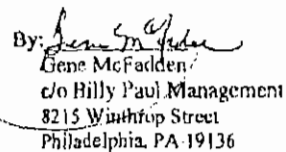 By: Gene McFadden
Gene McFadden
c/o Billy Paul Management
8215 Winthrop Street
Philadelphia, PA 19136